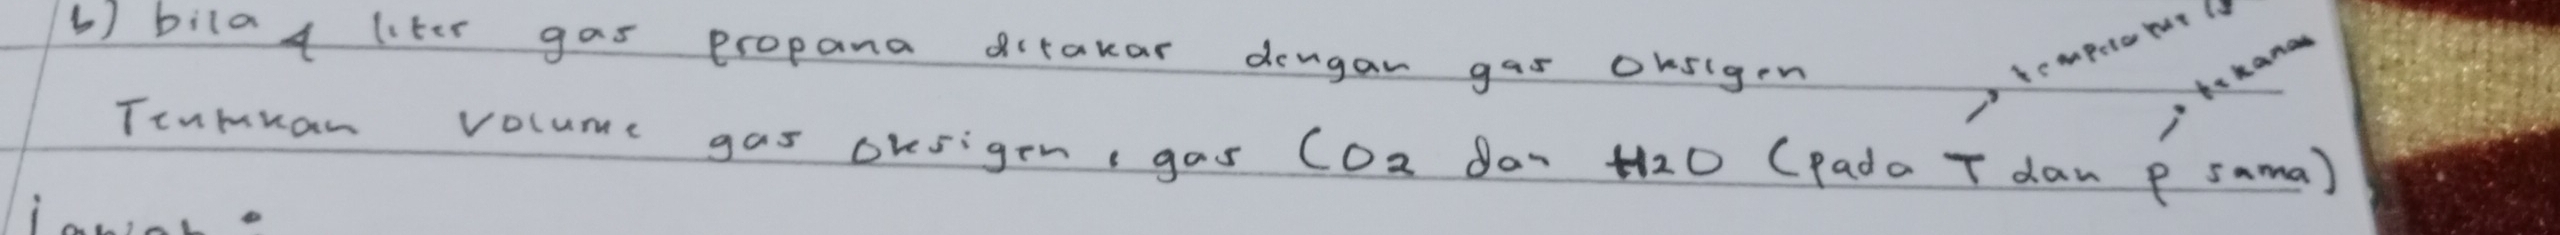 b) bila 4 liter gas propana ditakar dengan gas oksigen
temperatur
tekanan
Tentukan volume gas oksigen, gas CO2 dan H2O (pada T dan p sama)
Jawab :